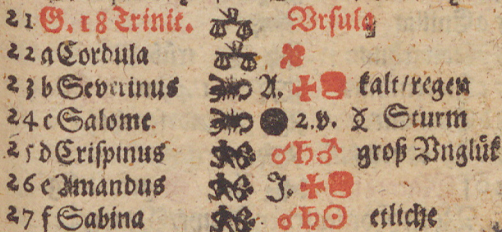 21 G. 18 Trinit. ♎ Vrsula
22 a Cordula ♎
23 b Severinus ♏ A. kalt/regen
24 c Salome ♏ ● 2. v. Sturm
25 d Crispinus ♐ ☌♄♂ groß Vnglük
26 e Amandus ♐ J.
27 f Sabina ☌♄☉ etliche